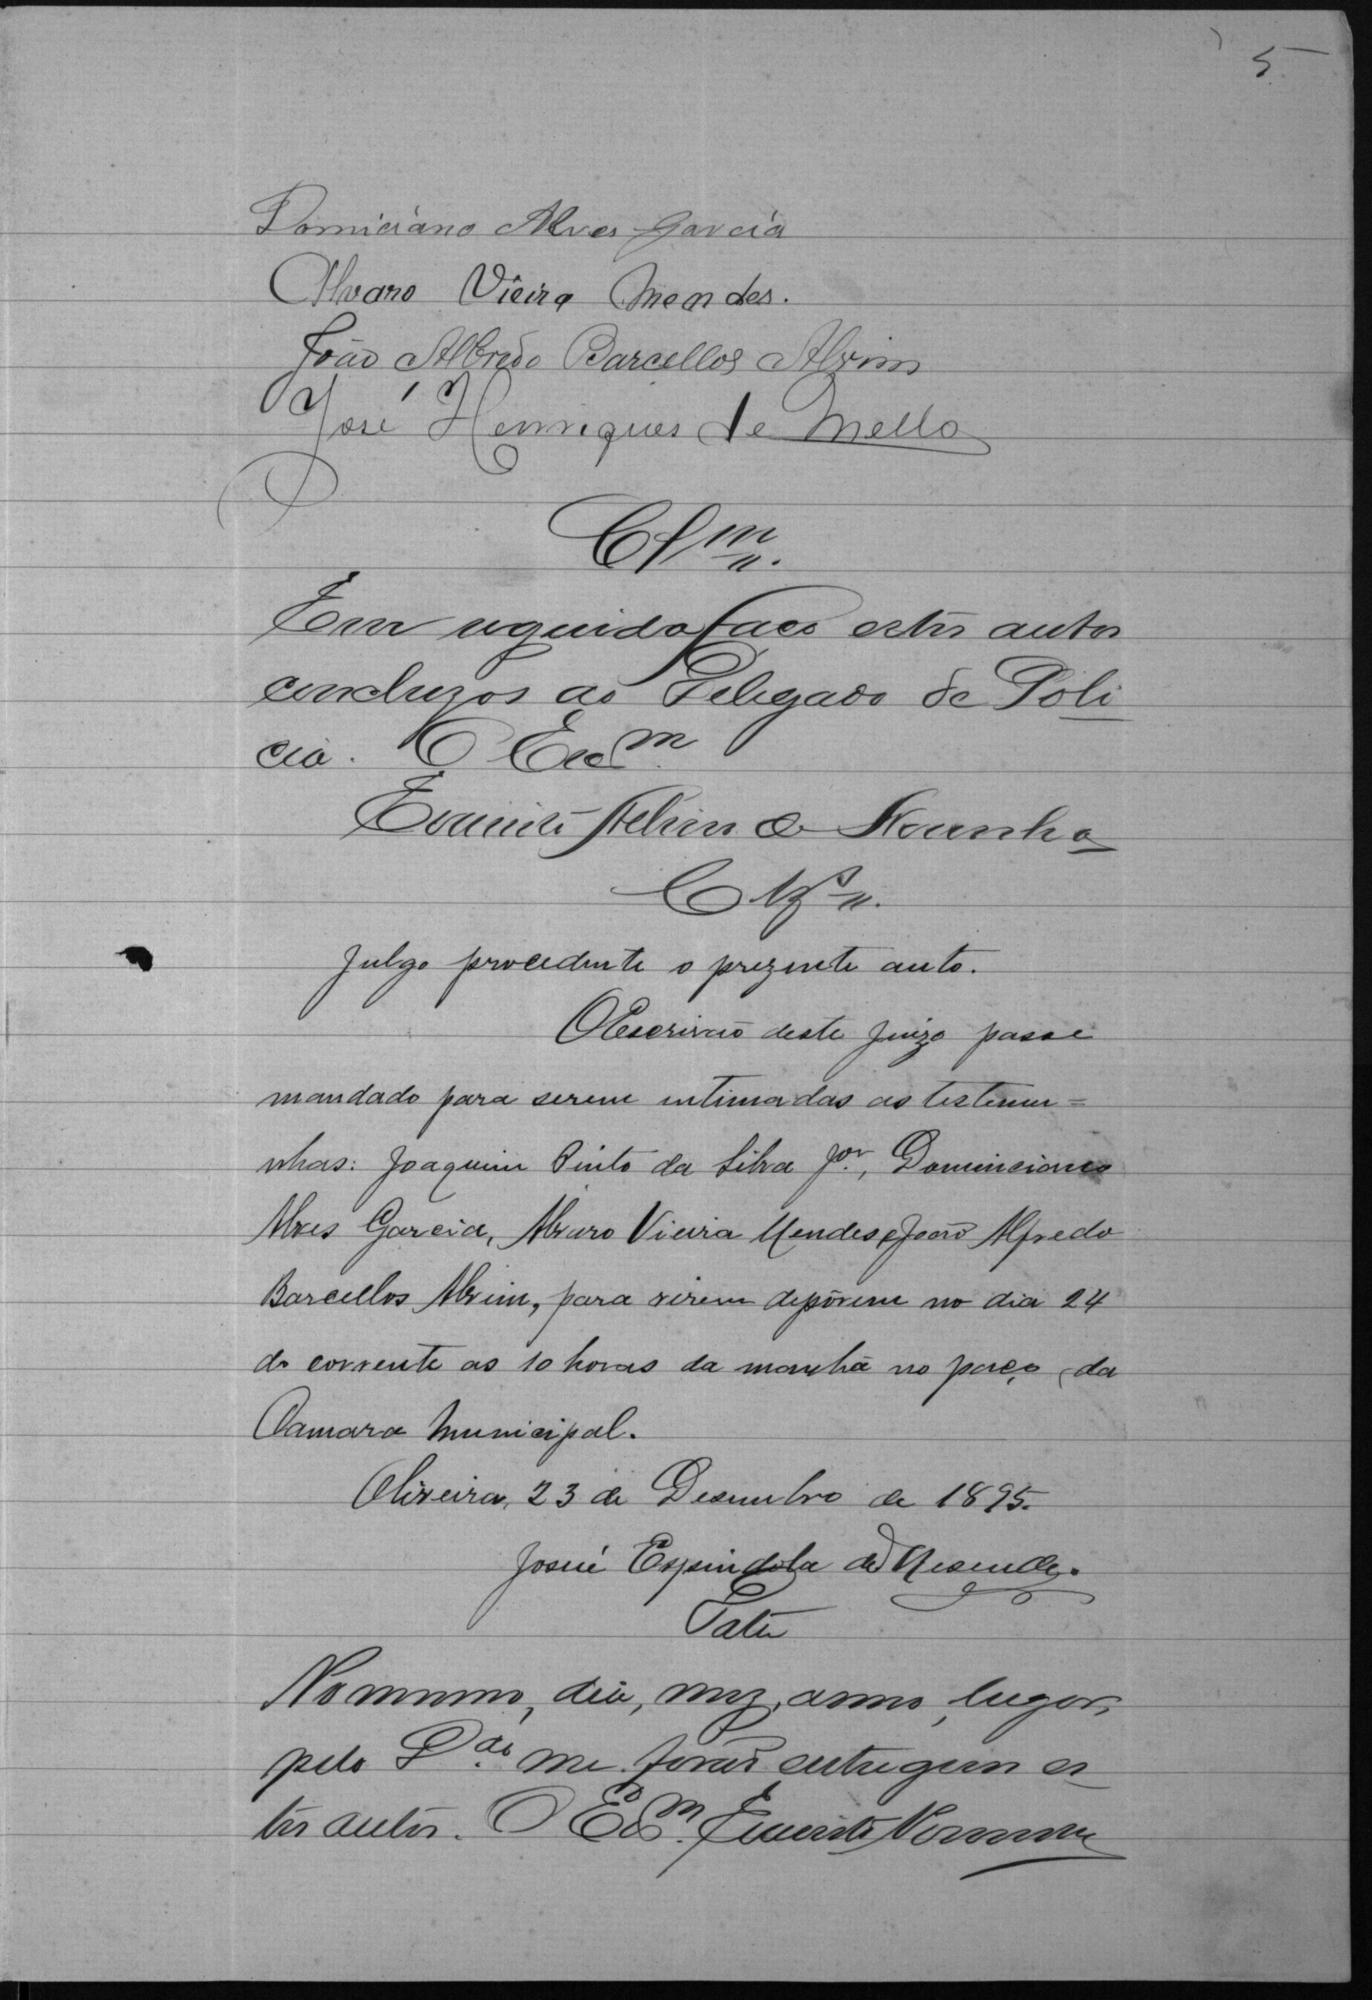 5
Domiciano Alves Garcia
Alvaro Vieira Mendes.
João Alfredo Barcellos Alvim
José Henriques de Mello
Clm.
Em seguida faço estes autos
concluzos ao Delegado de Poli
cia. O Escm.
Clzs.
Julgo procedente o prezente auto.
O Escrivão deste juizo passe
mandado para serem intimadas as testemu=
nhas: Joaquim Pinto da Silva Jor., Dominciano
Alves Garcia, Alvaro Vieira Mendes e João Alfredo
Barcellos Alvim, para virem depôrem no dia 24
do corrente as 10 horas da manhã no paço da
Camara Municipal.
Oliveira, 23 de Desembro de 1895.
Josué Espindola de Resende.
Data
No mesmo, dia, mez, anno, lugar,
pelo Ddo. me forão entregues es
tes autos. O Escm.